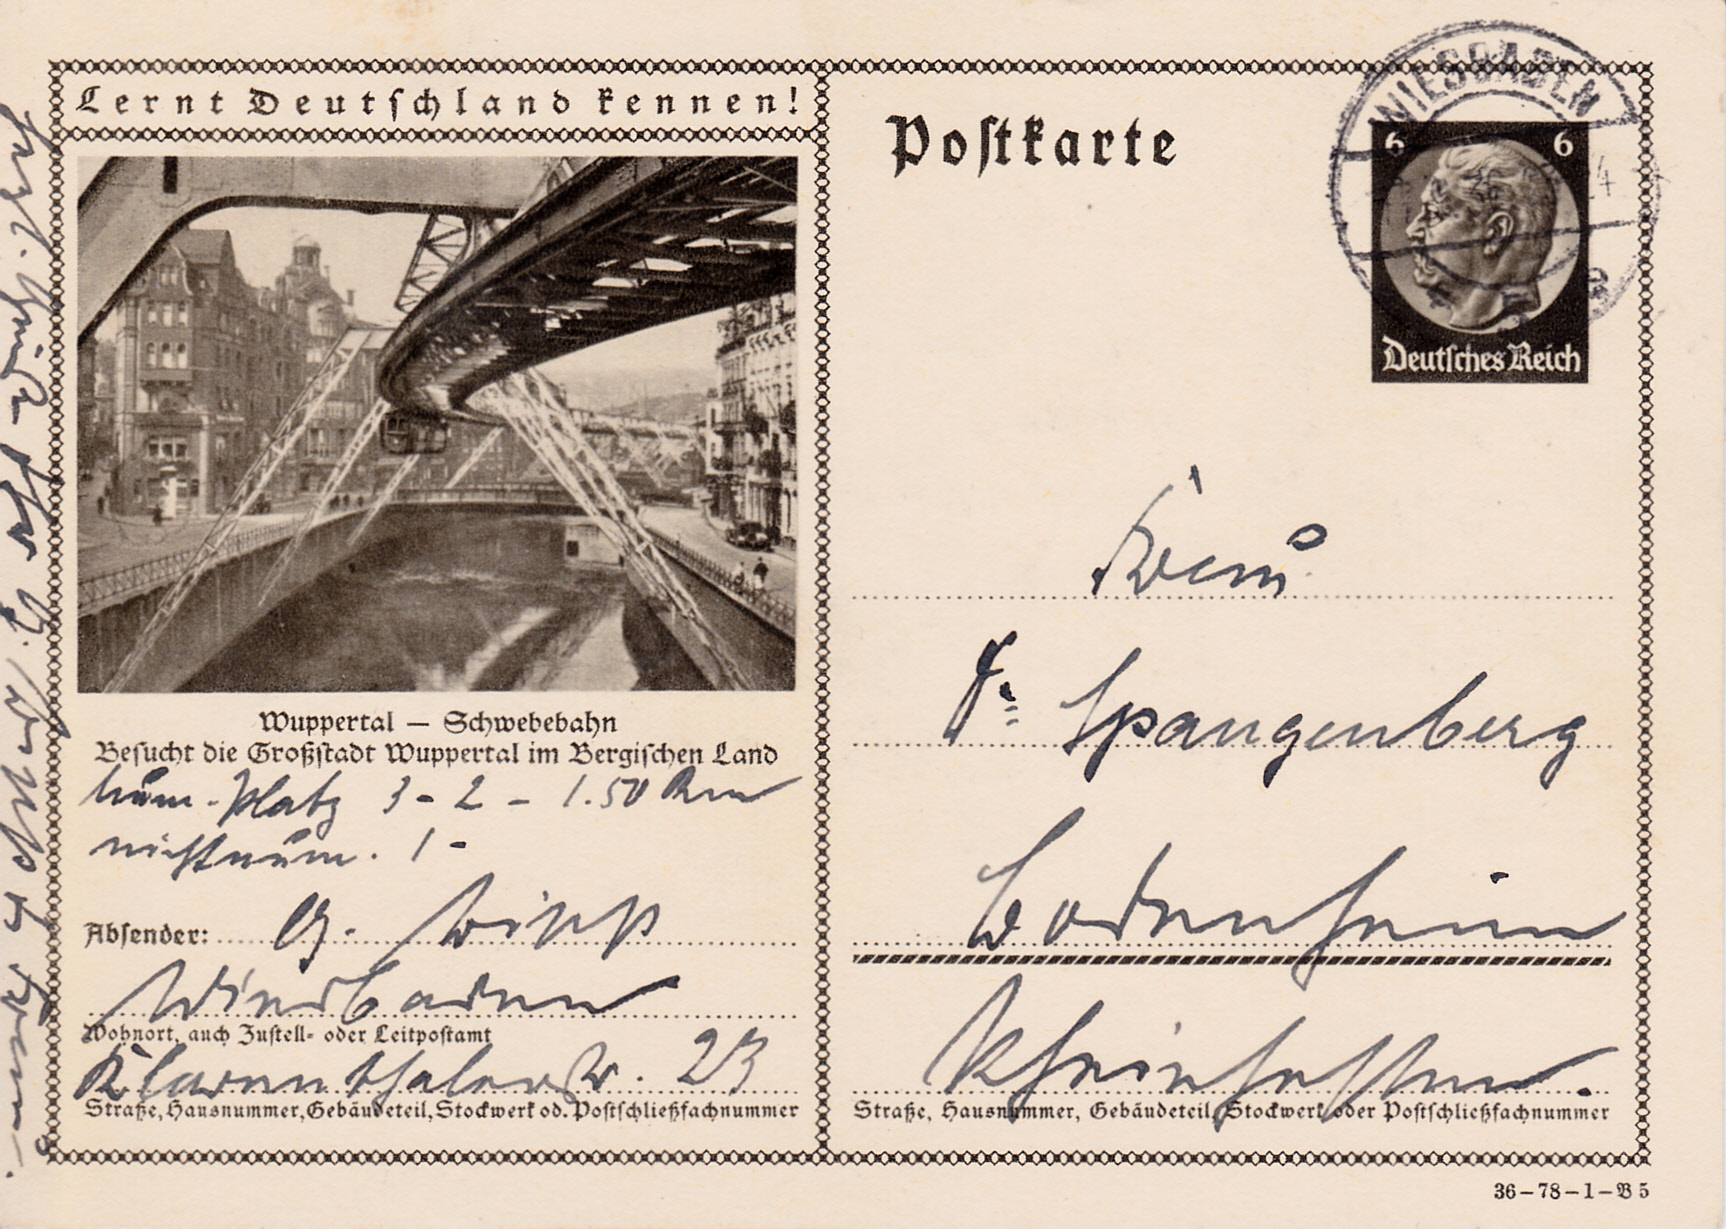 Lernt Deutschland kennen!
Wuppertal — Schwebebahn
Besucht die Großstadt Wuppertal im Bergischen Land
num. Platz 3 - 2 - 1.50 Rm
nichtnum. 1 -
Absender: G.
Wiesbaden
Wohnort, auch Zustell- oder Leitpostamt
Klarenthalerstr. 23
Straße, Hausnummer, Gebäudeteil, Stockwerk od. Postschließfachnummer
Postkarte
WIESBADEN
4
6 6
Deutsches Reich
Fr. Spangenberg
Bodenheim
Rheinhessen.
Straße, Hausnummer, Gebäudeteil, Stockwerk oder Postschließfachnummer
36–78–1–B 5